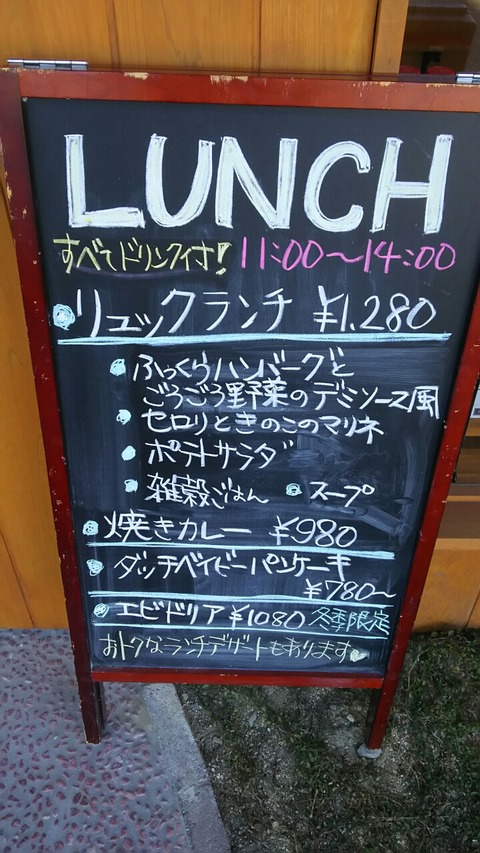 LUNCH
すべてドリンク付! 11:00〜14:00
リュックランチ ¥1,280
ふっくらハンバーグと
ごろごろ野菜のデミソース風
セロリときのこのマリネ
ポテトサラダ
雑穀ごはん スープ
焼きカレー ¥980
ダッチベイビーパンケーキ
¥780〜
エビドリア ¥1080 冬季限定
おトクなランチデザートもあります